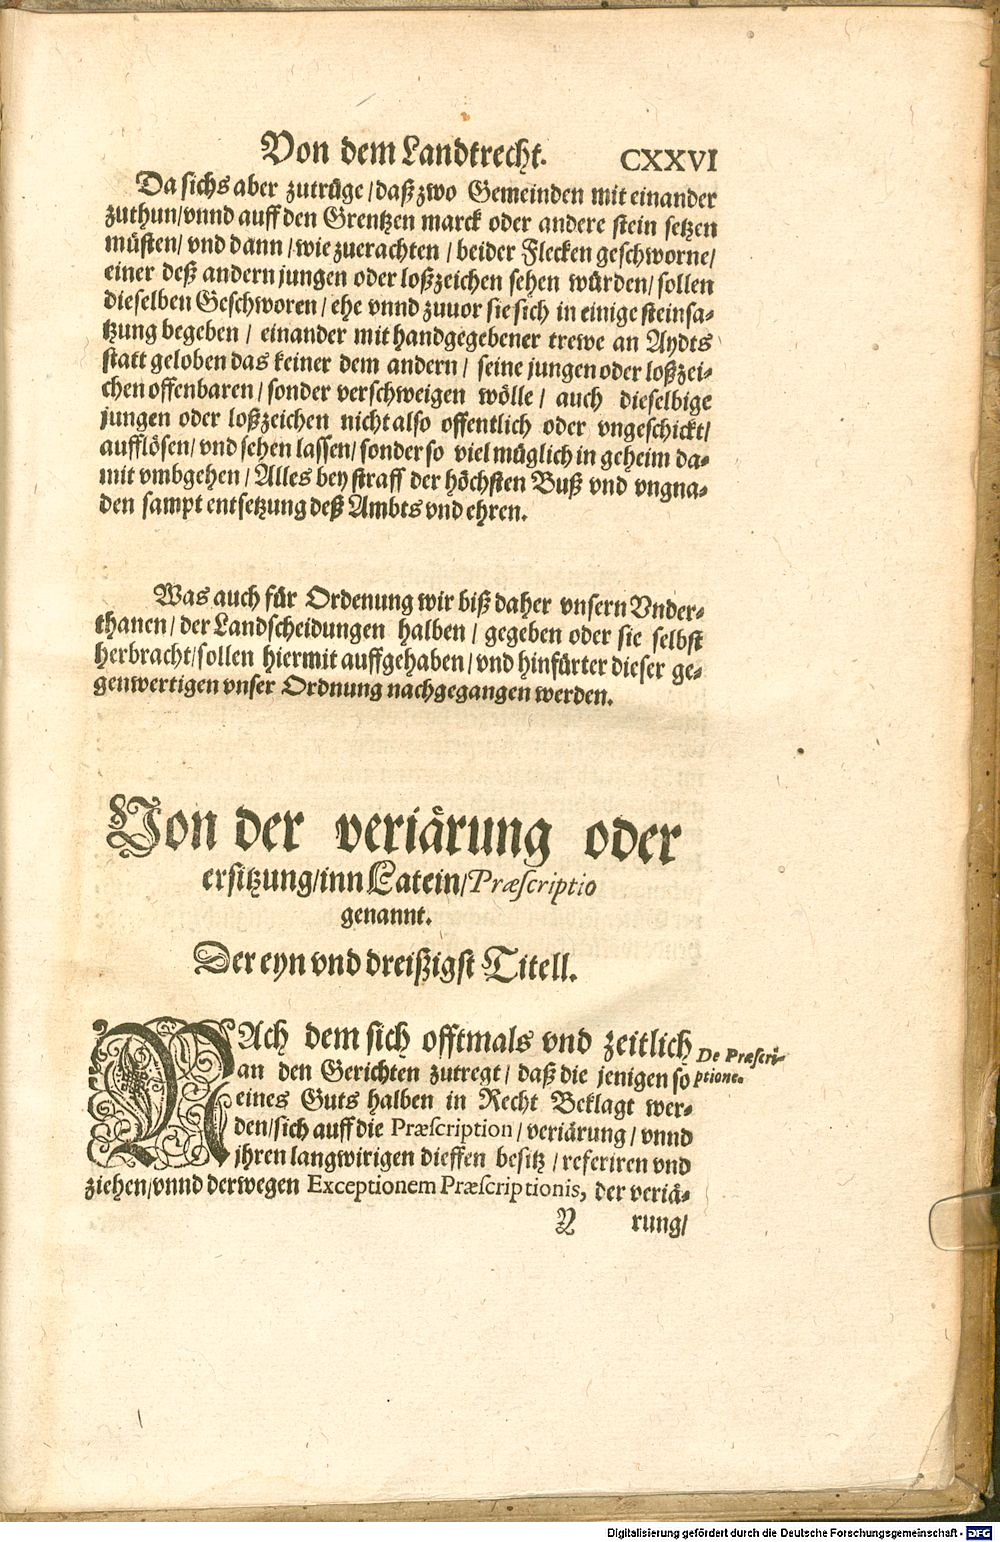 Von dem Landtrecht. CXXVI
Da sichs aber zutrüge / daß zwo Gemeinden mit einander
zuthun / vnnd auff den Grentzen marck oder andere stein setzen
müsten / vnd dann / wie zuerachten / beider Flecken geschworne /
einer deß andern jungen oder loßzeichen sehen würden / sollen
dieselben Geschworen / ehe vnnd zuuor sie sich in einige steinsa-
tzung begeben / einander mit handgegebener trewe an Aydts
statt geloben das keiner dem andern / seine jungen oder loßzei-
chen offenbaren / sonder verschweigen wölle / auch dieselbige
jungen oder loßzeichen nicht also offentlich oder vngeschickt /
aufflösen / vnd sehen lassen / sonder so viel müglich in geheim da-
mit vmbgehen / Alles bey straff der höchsten Buß vnd vngna-
den sampt entsetzung deß Ambts vnd ehren.
Was auch für Ordenung wir biß daher vnsern Vnder-
thanen / der Landscheidungen halben / gegeben oder sie selbst
herbracht / sollen hiermit auffgehaben / vnd hinfürter dieser ge-
genwertigen vnser Ordnung nachgegangen werden.
Von der veriärung oder
ersitzung / inn Latein / Præscriptio
genannt.
Der eyn vnd dreißigst Titell.
NAch dem sich offtmals vnd zeitlich
an den Gerichten zutregt / daß die jenigen so
eines Guts halben in Recht Beklagt wer-
den / sich auff die Præscription / veriärung / vnnd
jhren langwirigen dieffen besitz / referiren vnd
ziehen / vnnd derwegen Exceptionem Præscriptionis, der veriä-
De Præscri-
ptione.
Y rung /
Digitalisierung gefördert durch die Deutsche Forschungsgemeinschaft - DFG